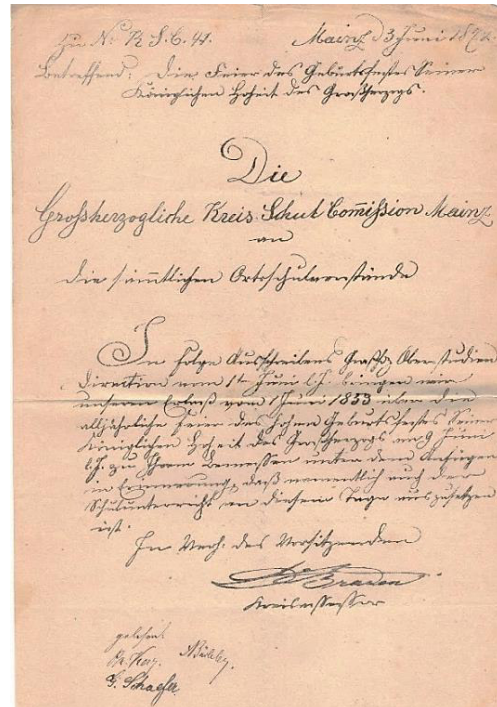 Zu No. K. S. C. 44. Mainz 3 Juni 1874.
Betreffend: Die Feier des Geburtsfestes Seiner
Königlichen Hoheit des Großherzogs.
Die
Großherzogliche Kreis-Schul Comißion Mainz
an
die sämmtlichen Ortsschulvorstände
In Folge Ausschreibens Großh. Ober-studien
direction vom 1ten Juni l. J. bringen wir
unseren Erlaß vom 1 Juni 1853 über die
alljährliche Feier des hohen Geburtsfestes Seiner
Königlichen Hoheit des Großherzogs am 9 Juni
l. J. zu Ihrem Bemessen unter dem Anfügen
in Erinnerung, daß namentlich auch der
Schulunterricht an diesem Tage auszusetzen
ist.
In Verh. des Vorsitzenden
Braden
Kreisassessor
gelesen
G. Schaefer